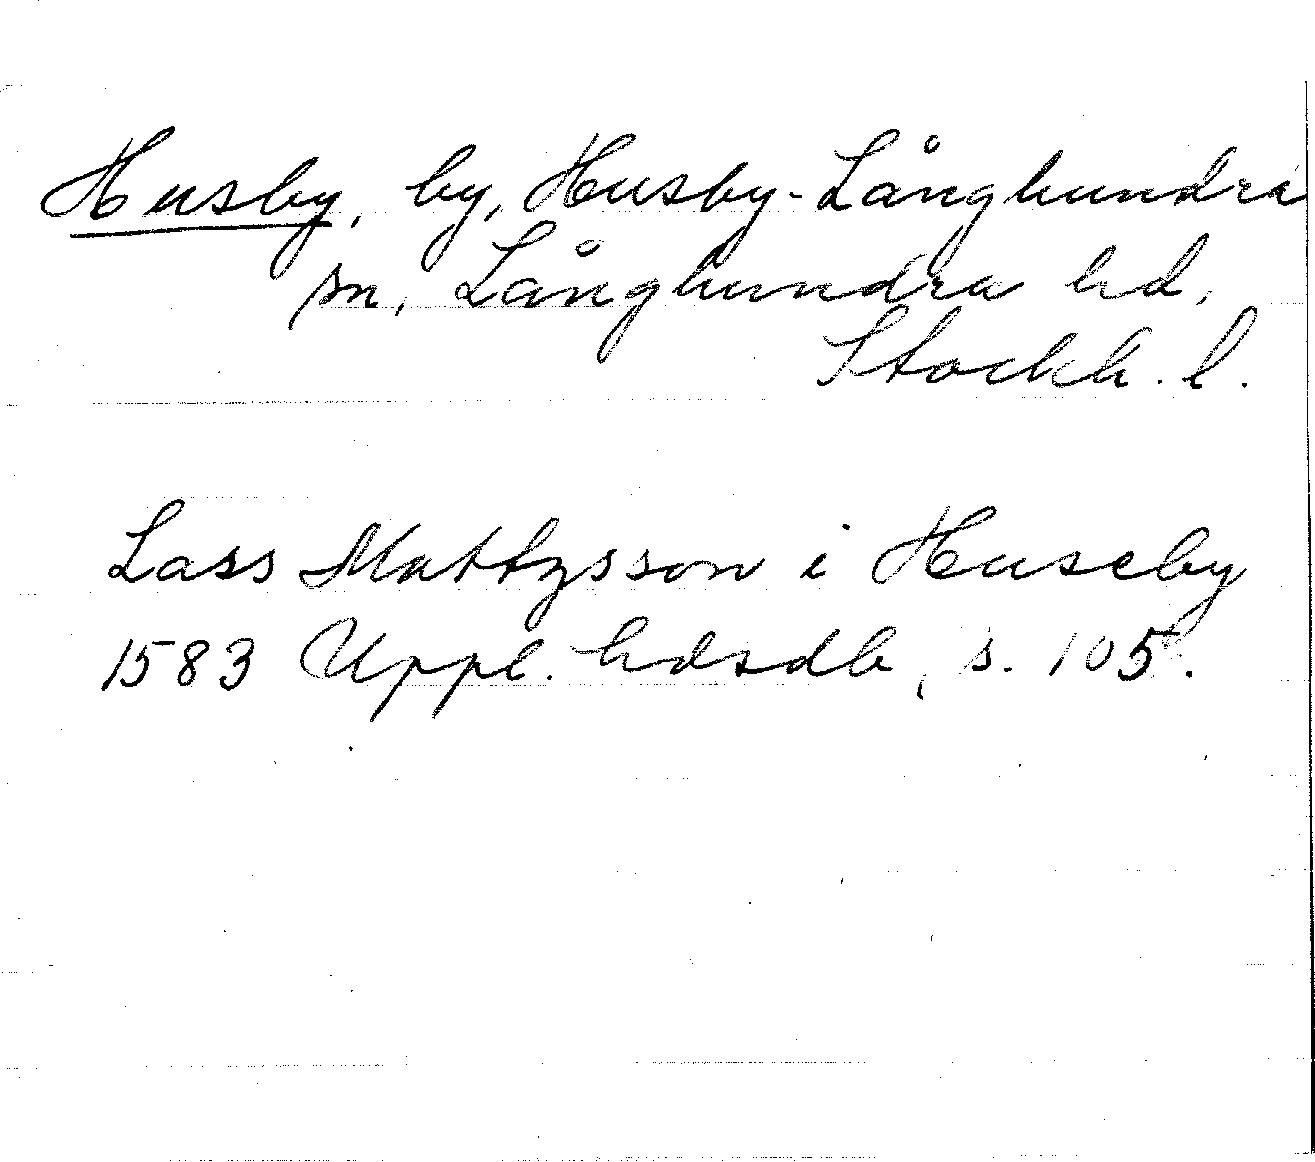 Husby, by, Husby-Långhundra
sn, Långhundra hd,
Stockh. l.
Lass Mattzsson i Huseby
1583 Uppl. hdsdb, s. 105.